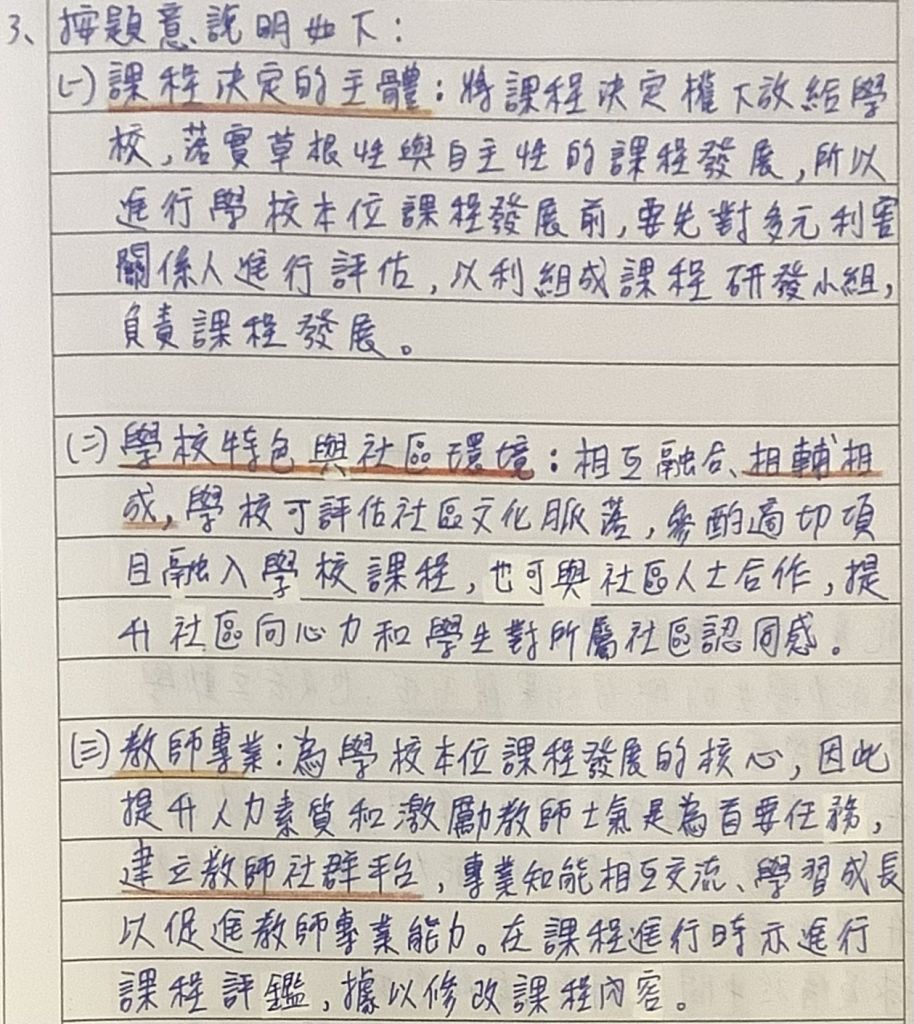 3、按題意說明如下：
(一)課程決定的主體：將課程決定權下放給學
校，落實草根性與自主性的課程發展，所以
進行學校本位課程發展前，要先對多元利害
關係人進行評估，以利組成課程研發小組，
負責課程發展。
(二)學校特色與社區環境：相互融合、相輔相
成，學校可評估社區文化脈落，參酌適切項
目融入學校課程，也可與社區人士合作，提
升社區向心力和學生對所屬社區認同感。
(三)教師專業：為學校本位課程發展的核心，因此
提升人力素質和激勵教師士氣是為首要任務，
建立教師社群平台，專業知能相互交流、學習成長
以促進教師專業能力。在課程進行時亦進行
課程評鑑，據以修改課程內容。